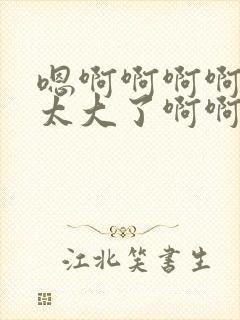 嗯啊啊啊啊
太大了啊啊
江北笑书生